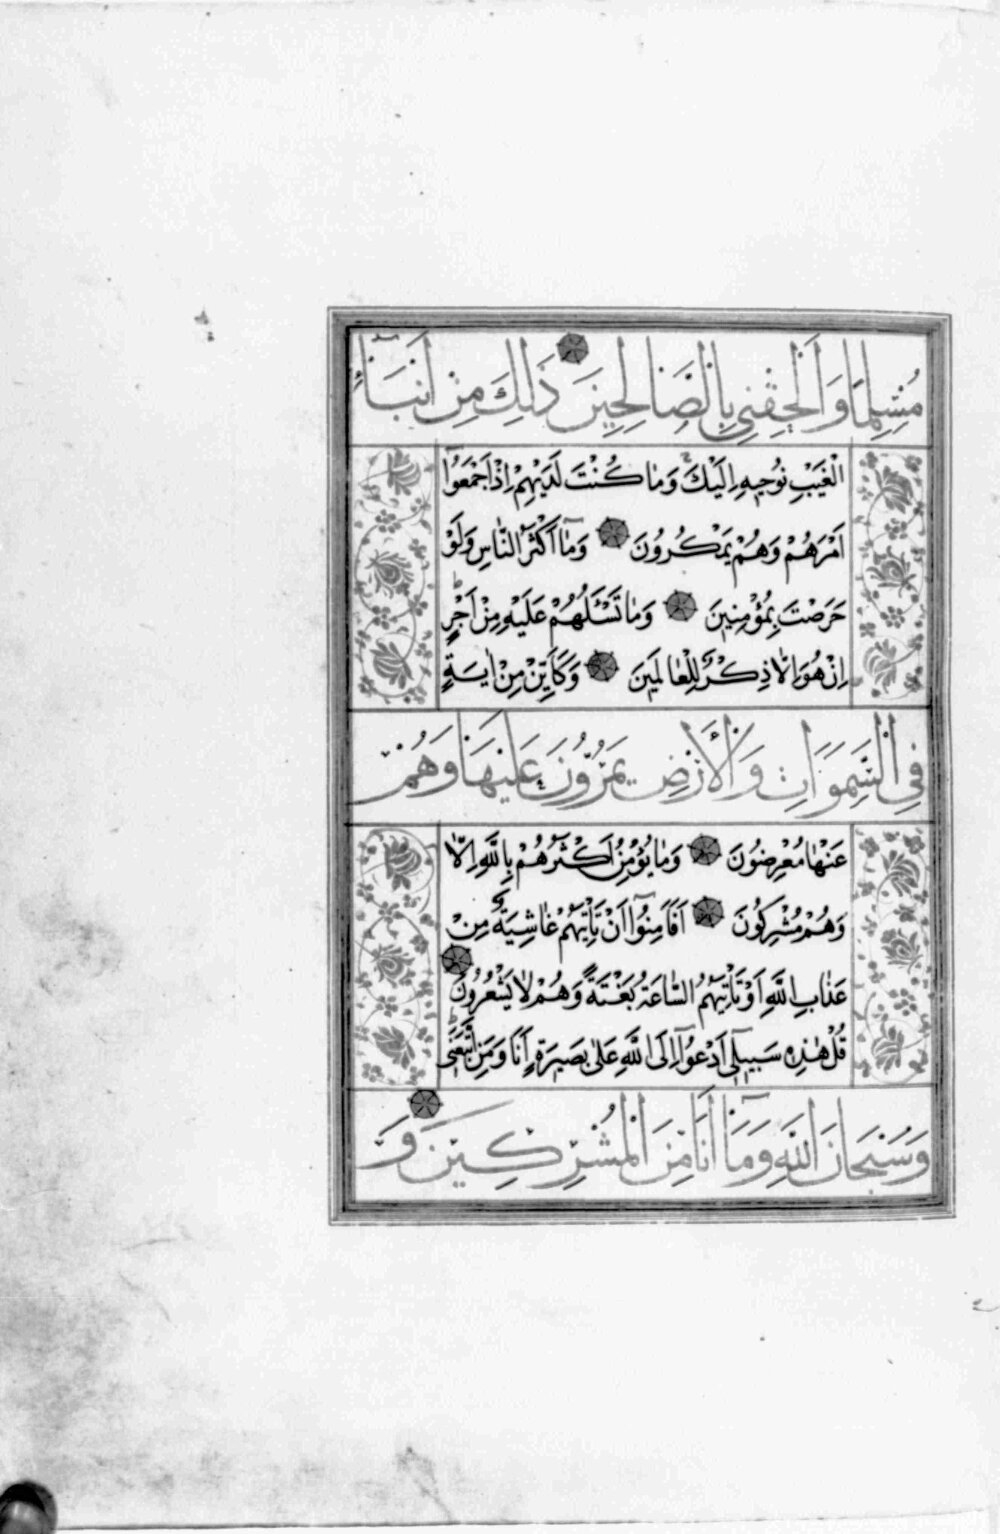 مُسْلِمًا وَاَلْحِقْنِي بِالصَّالِحِينَ ذٰلِكَ مِنْ اَنْبَاۤءِ
الْغَيْبِ نُوحِيهِ اِلَيْكَ وَمَا كُنْتَ لَدَيْهِمْ اِذْ اَجْمَعُوٓا
اَمْرَهُمْ وَهُمْ يَمْكُرُونَ وَمَآ اَكْثَرُ النَّاسِ وَلَوْ
حَرَصْتَ بِمُؤْمِنِينَ وَمَا تَسْـَٔلُهُمْ عَلَيْهِ مِنْ اَجْرٍ
اِنْ هُوَ اِلَّا ذِكْرٌ لِلْعَالَمِينَ وَكَاَيِّنْ مِنْ اٰيَةٍ
فِي السَّمٰوَاتِ وَالْاَرْضِ يَمُرُّونَ عَلَيْهَا وَهُمْ
عَنْهَا مُعْرِضُونَ وَمَا يُؤْمِنُ اَكْثَرُهُمْ بِاللّٰهِ اِلَّا
وَهُمْ مُشْرِكُونَ اَفَاَمِنُوٓا اَنْ تَاْتِيَهُمْ غَاشِيَةٌ مِنْ
عَذَابِ اللّٰهِ اَوْ تَاْتِيَهُمُ السَّاعَةُ بَغْتَةً وَهُمْ لَا يَشْعُرُونَ
قُلْ هٰذِهِ سَبِيلِيٓ اَدْعُوٓا اِلَى اللّٰهِ عَلٰى بَصِيرَةٍ اَنَا وَمَنِ اتَّبَعَنِي
وَسُبْحَانَ اللّٰهِ وَمَآ اَنَا مِنَ الْمُشْرِكِينَ وَ